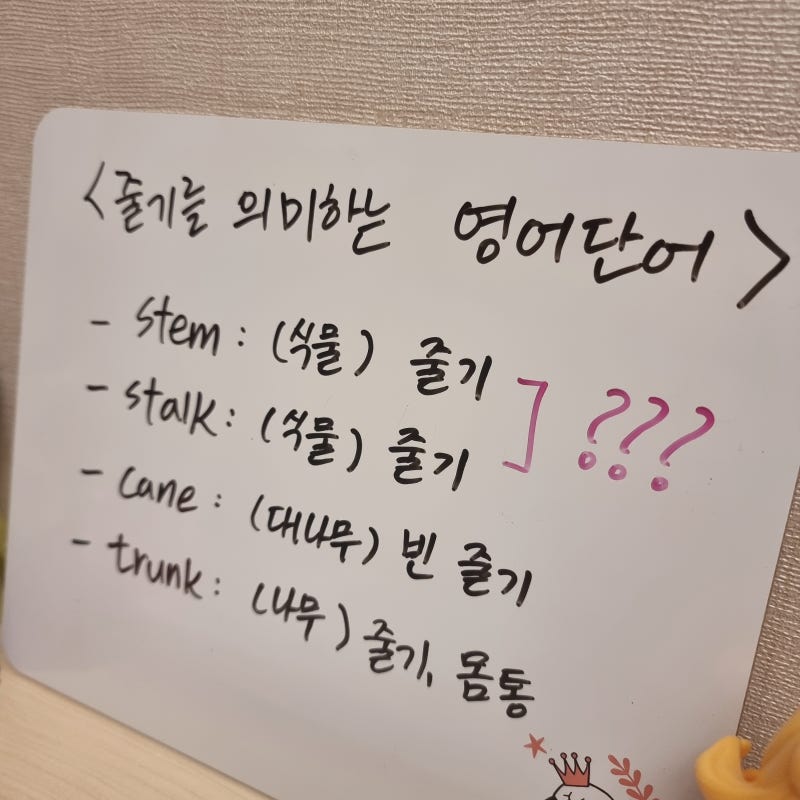 <줄기를 의미하는 영어단어>
- stem : (식물) 줄기
- stalk : (식물) 줄기 ] ???
- cane : (대나무) 빈 줄기
- trunk : (나무) 줄기, 몸통